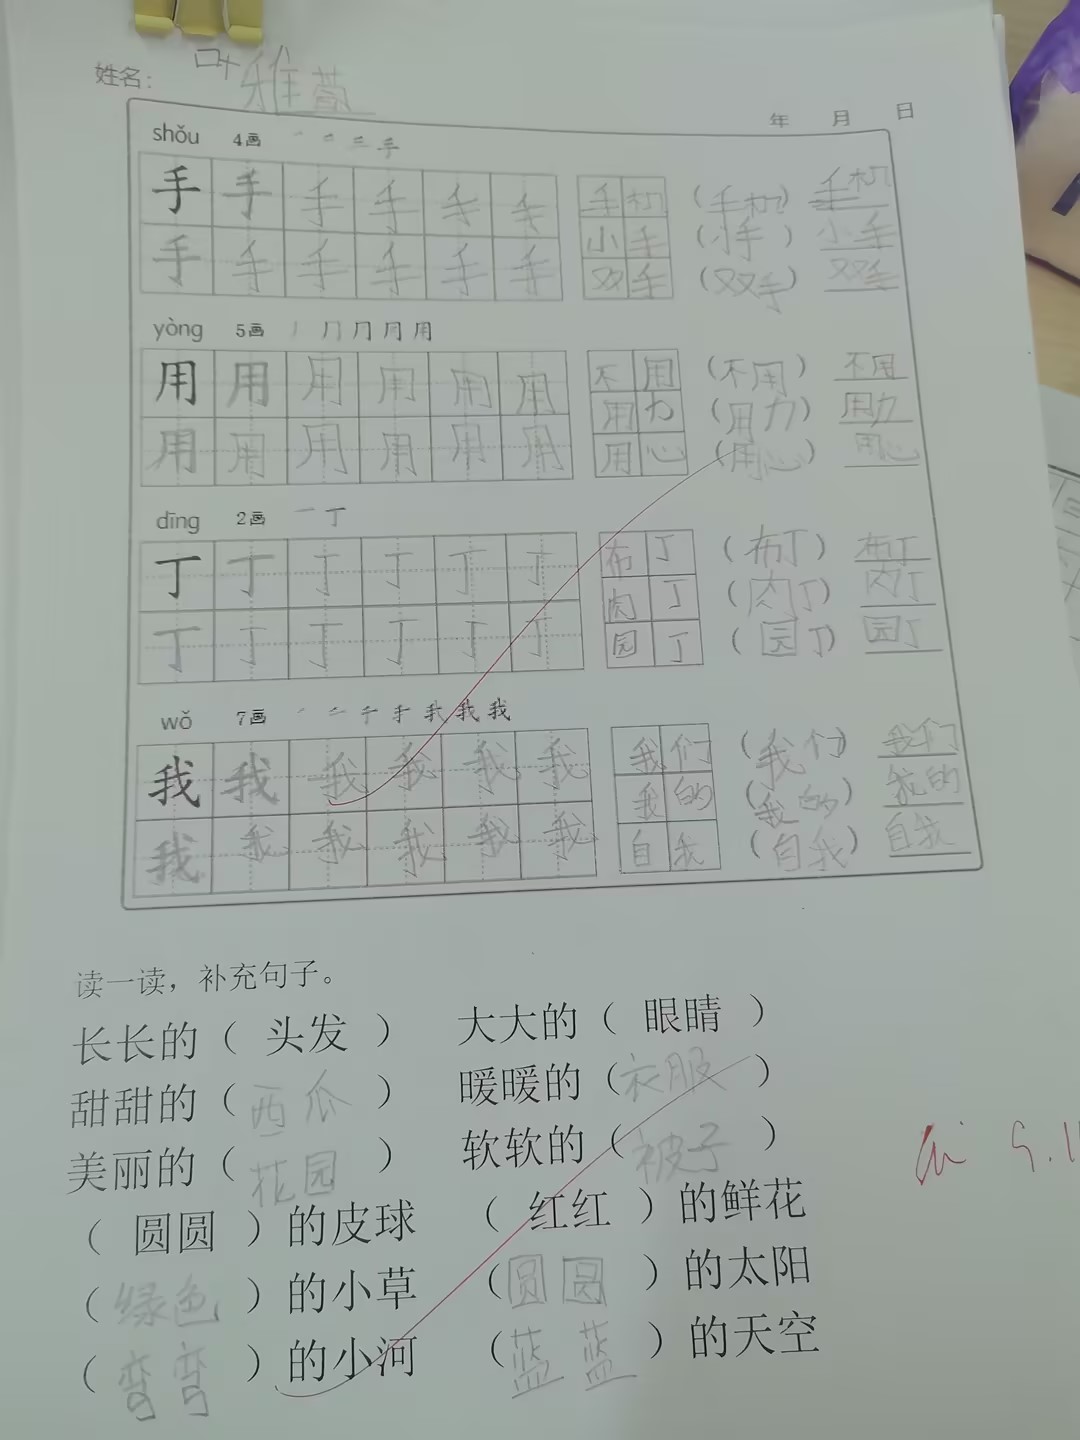 姓名： 叶雅萱
年 月 日
shǒu 4画 手
手 手 手 手 手 手 手机 （手机） 手机
手 手 手 手 手 手 小手 （小手） 小手
双手 （双手） 双手
yòng 5画 丨 冂 月 月 用
用 用 用 用 用 用 不用 （不用） 不用
用 用 用 用 用 用 用力 （用力） 用力
用心 （用心） 用心
dīng 2画 一 丁
丁 丁 丁 丁 丁 丁 布丁 （布丁） 布丁
丁 丁 丁 丁 丁 丁 肉丁 （肉丁） 肉丁
园丁 （园丁） 园丁
wǒ 7画 我 我
我 我 我 我 我 我 我们 （我们） 我们
我 我 我 我 我 我 我的 （我的） 我的
自我 （自我） 自我
读一读，补充句子。
长长的（ 头发 ） 大大的（ 眼睛 ）
甜甜的（ 西瓜 ） 暖暖的（ 衣服 ）
美丽的（ 花园 ） 软软的（ 被子 ）
（ 圆圆 ）的皮球 （ 红红 ）的鲜花
（ 绿色 ）的小草 （ 圆圆 ）的太阳
（ 弯弯 ）的小河 （ 蓝蓝 ）的天空